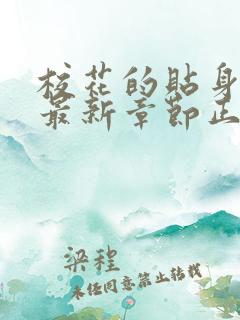 校花的贴身
最新章节正
梁程
未经同意禁止转载